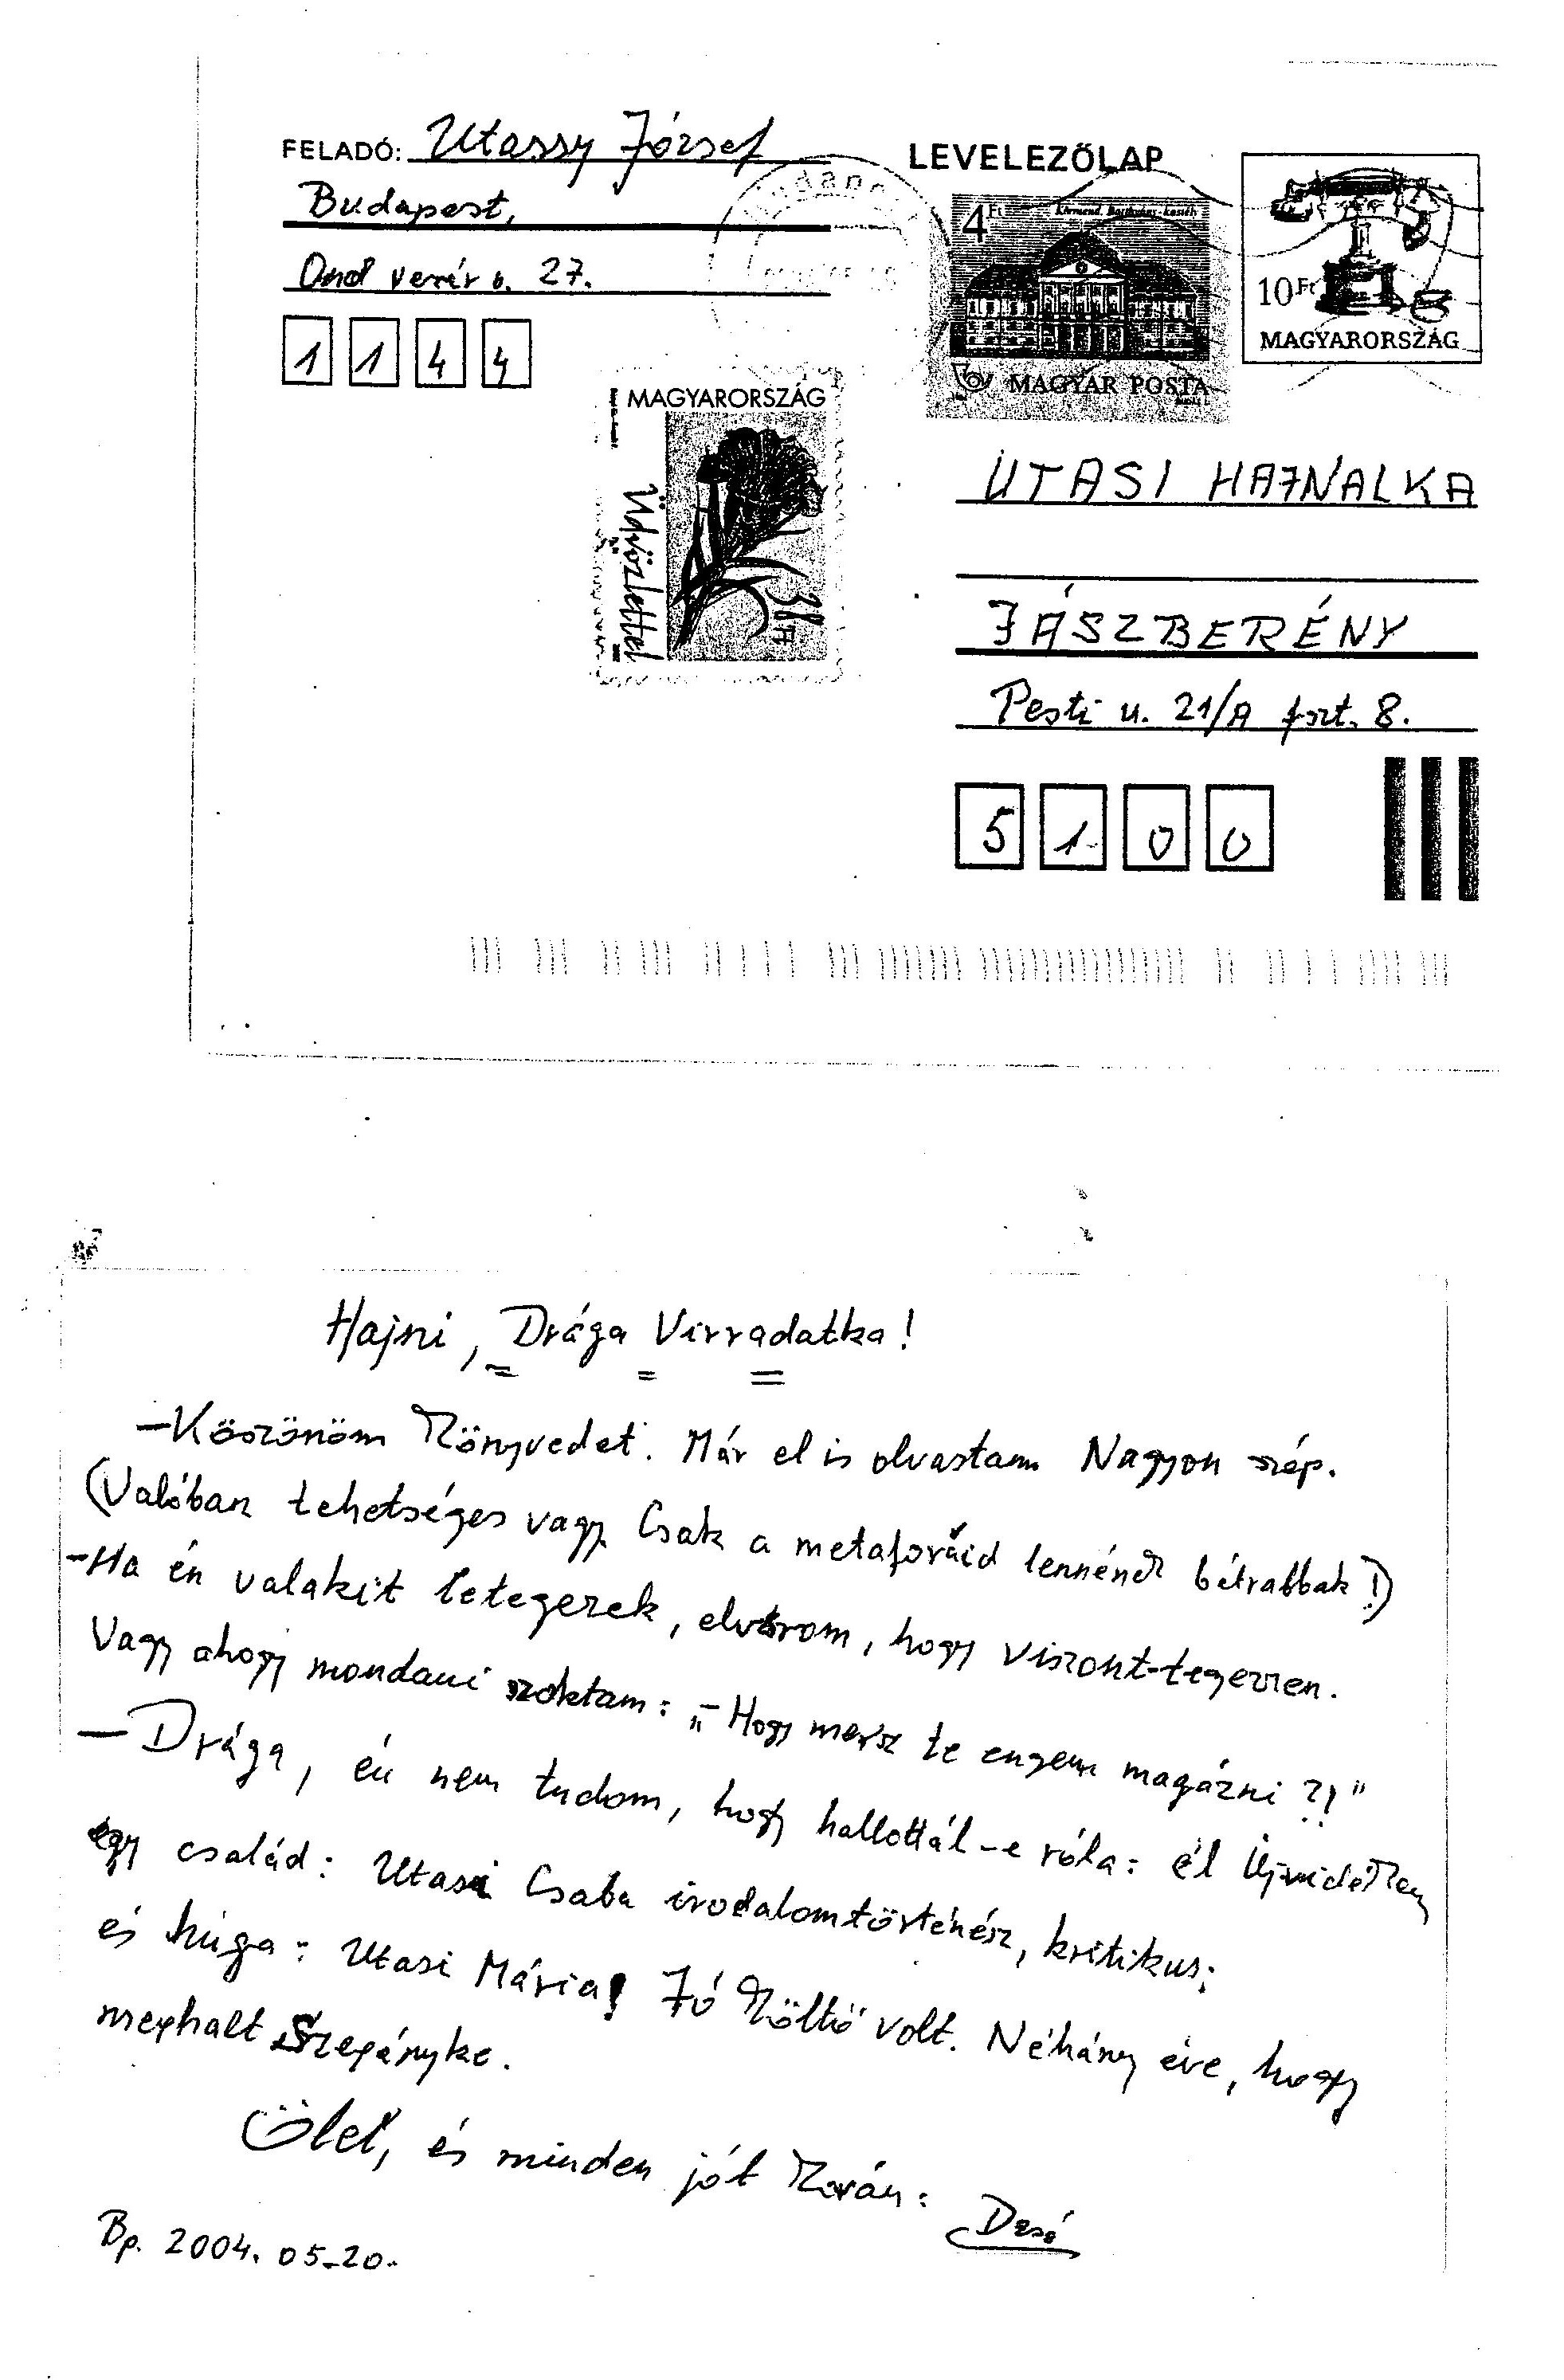 FELADÓ: Utassy József
Budapest,
Ond vezér u. 27.
1 1 4 4
LEVELEZŐLAP
4 Ft Körmend. Batthyány-kastély
MAGYAR POSTA
10 Ft
MAGYARORSZÁG
MAGYARORSZÁG
Üdvözlettel
38 Ft
UTASI HAJNALKA
JÁSZBERÉNY
Pesti u. 21/A fszt. 8.
5 1 0 0
Hajni, Drága Virradatka!
– Köszönöm Könyvedet. Már el is olvastam. Nagyon szép.
(Valóban tehetséges vagy. Csak a metaforáid lennének bátrabbak!)
– Ha én valakit letegezek, elvárom, hogy viszont-tegezzen.
Vagy ahogy mondani szoktam: „– Hogy mersz te engem magázni?!"
– Drága, én nem tudom, hogy hallottál-e róla: él Újvidéken
egy család: Utasi Csaba irodalomtörténész, kritikus;
és húga: Utasi Mária! Jó Költő volt. Néhány éve, hogy
meghalt Szegényke.
Ölel, és minden jót Kíván: Dzsó
Bp. 2004. 05. 20.